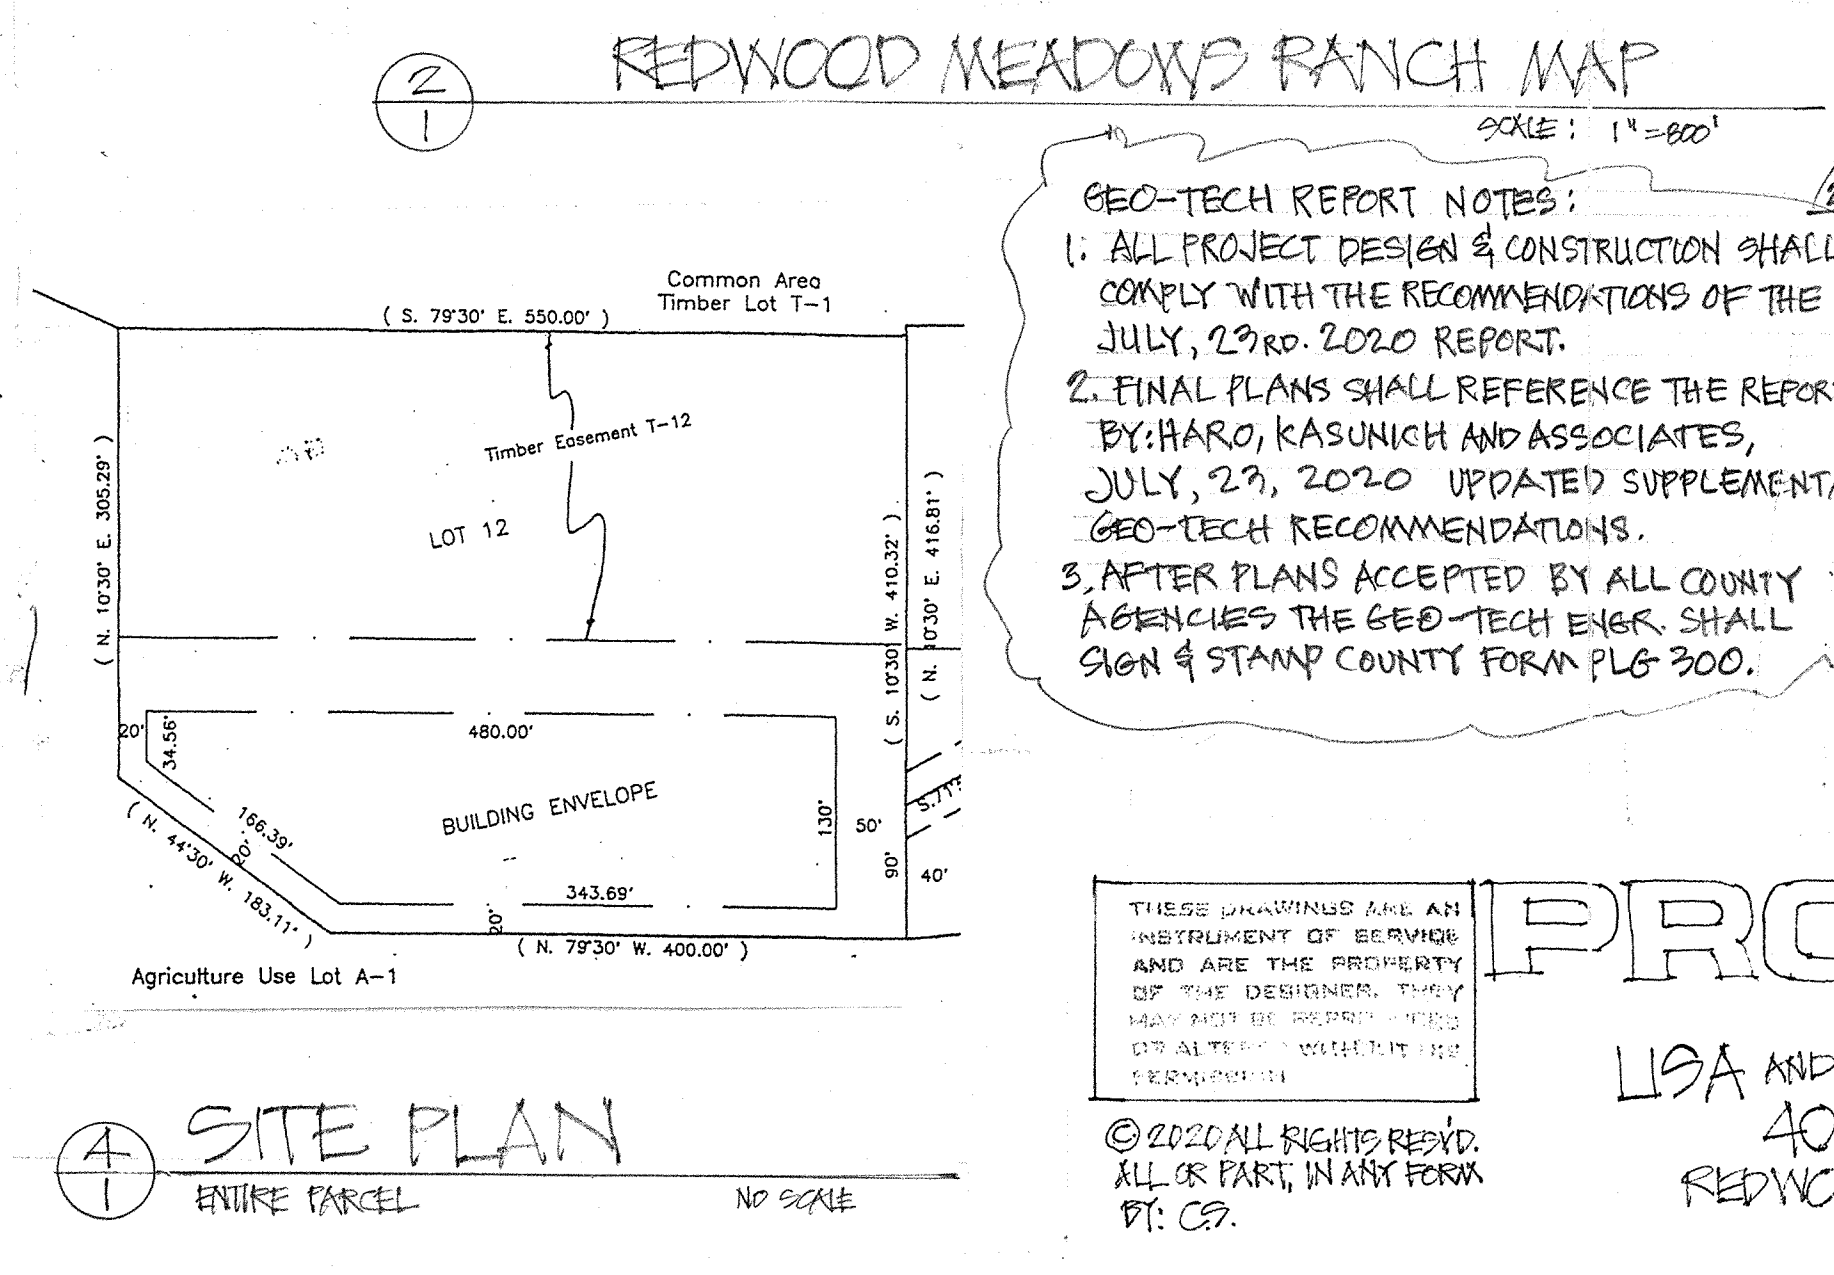 2
1
REDWOOD MEADOWS RANCH MAP
SCALE: 1"=800'
GEO-TECH REPORT NOTES:
1. ALL PROJECT DESIGN & CONSTRUCTION SHALL
COMPLY WITH THE RECOMMENDATIONS OF THE
JULY, 23RD. 2020 REPORT.
2. FINAL PLANS SHALL REFERENCE THE REPOR
BY: HARO, KASUNICH AND ASSOCIATES,
JULY, 23, 2020 UPDATED SUPPLEMENT
GEO-TECH RECOMMENDATIONS.
3. AFTER PLANS ACCEPTED BY ALL COUNTY
AGENCIES THE GEO-TECH ENGR. SHALL
SIGN & STAMP COUNTY FORM PLG 300.
Common Area
Timber Lot T-1
( S. 79°30' E. 550.00' )
Timber Easement T-12
LOT 12
( N. 10°30' E. 305.29' )
( S. 10°30' W. 410.32' )
( N. 10°30' E. 416.81' )
20'
34.56'
480.00'
BUILDING ENVELOPE
166.39'
20'
( N. 44°30' W. 183.11' )
130'
50'
90'
40'
343.69'
20'
( N. 79°30' W. 400.00' )
Agriculture Use Lot A-1
4
1
SITE PLAN
ENTIRE PARCEL
NO SCALE
THESE DRAWINGS ARE AN
INSTRUMENT OF SERVICE
AND ARE THE PROPERTY
OF THE DESIGNER. THEY
MAY NOT BE
WITHOUT
PERMISSION
© 2020 ALL RIGHTS RES'V'D.
ALL OR PART, IN ANY FORM
BY: C.S.
PRO
LISA AND
40
REDWO